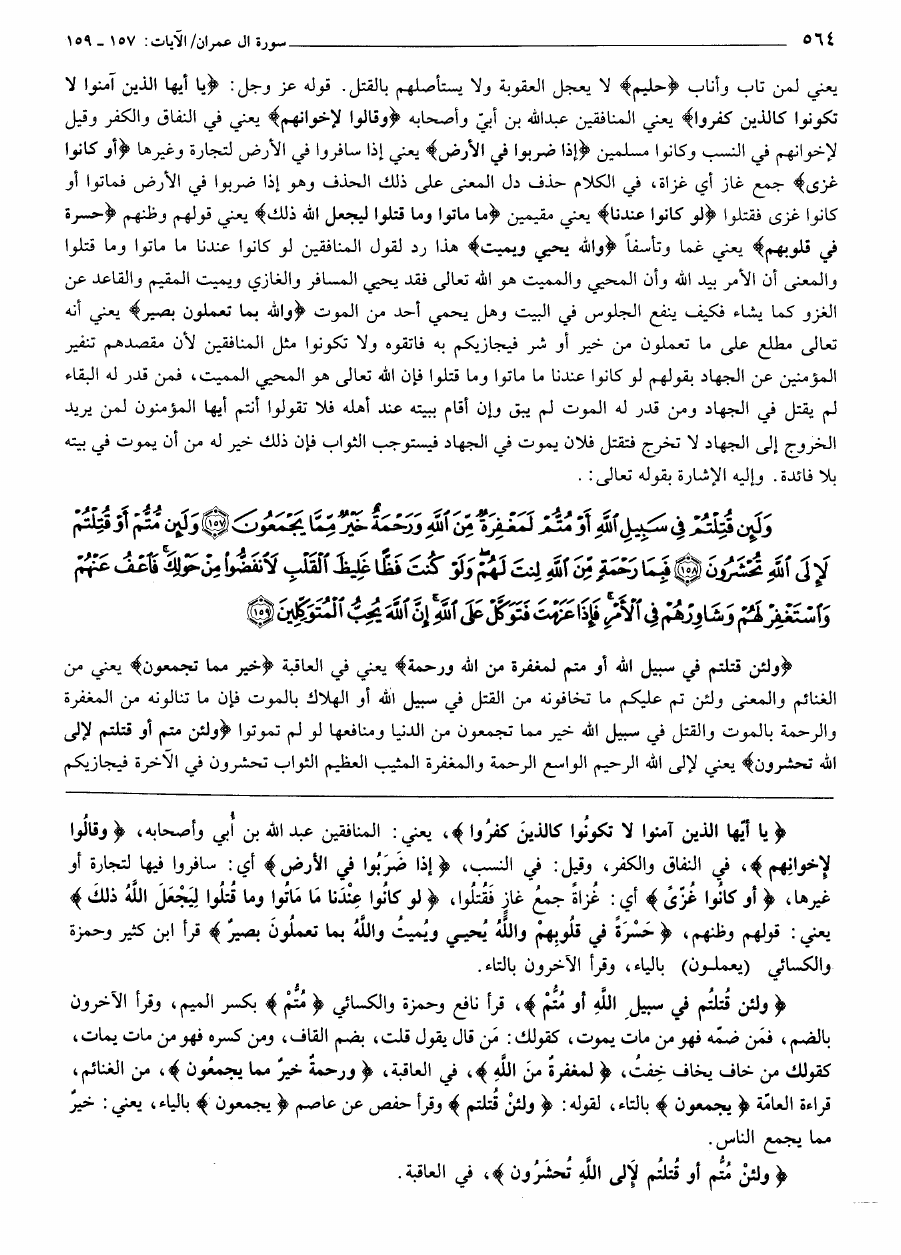 ٥٦٤ سورة ال عمران/ الآيات: ١٥٧ ـ ١٥٩
يعني لمن تاب وأناب ﴿حليم﴾ لا يعجل العقوبة ولا يستأصلهم بالقتل. قوله عز وجل: ﴿يا أيها الذين آمنوا لا
تكونوا كالذين كفروا﴾ يعني المنافقين عبدالله بن أبيّ وأصحابه ﴿وقالوا لإخوانهم﴾ يعني في النفاق والكفر وقيل
لإخوانهم في النسب وكانوا مسلمين ﴿إذا ضربوا في الأرض﴾ يعني إذا سافروا في الأرض لتجارة وغيرها ﴿أو كانوا
غزى﴾ جمع غاز أي غزاة، في الكلام حذف دل المعنى على ذلك الحذف وهو إذا ضربوا في الأرض فماتوا أو
كانوا غزى فقتلوا ﴿لو كانوا عندنا﴾ يعني مقيمين ﴿ما ماتوا وما قتلوا ليجعل الله ذلك﴾ يعني قولهم وظنهم ﴿حسرة
في قلوبهم﴾ يعني غما وتأسفاً ﴿والله يحيي ويميت﴾ هذا رد لقول المنافقين لو كانوا عندنا ما ماتوا وما قتلوا
والمعنى أن الأمر بيد الله وأن المحيي والمميت هو الله تعالى فقد يحيي المسافر والغازي ويميت المقيم والقاعد عن
الغزو كما يشاء فكيف ينفع الجلوس في البيت وهل يحمي أحد من الموت ﴿والله بما تعملون بصير﴾ يعني أنه
تعالى مطلع على ما تعملون من خير أو شر فيجازيكم به فاتقوه ولا تكونوا مثل المنافقين لأن مقصدهم تنفير
المؤمنين عن الجهاد بقولهم لو كانوا عندنا ما ماتوا وما قتلوا فإن الله تعالى هو المحيي المميت، فمن قدر له البقاء
لم يقتل في الجهاد ومن قدر له الموت لم يبق وإن أقام ببيته عند أهله فلا تقولوا أنتم أيها المؤمنون لمن يريد
الخروج إلى الجهاد لا تخرج فتقتل فلان يموت في الجهاد فيستوجب الثواب فإن ذلك خير له من أن يموت في بيته
بلا فائدة. وإليه الإشارة بقوله تعالى: .
وَلَئِن قُتِلْتُمْ فِى سَبِيلِ ٱللَّهِ أَوْ مُتُّمْ لَمَغْفِرَةٌ مِّنَ ٱللَّهِ وَرَحْمَةٌ خَيْرٌ مِّمَّا يَجْمَعُونَ ١٥٧ وَلَئِن مُّتُّمْ أَوْ قُتِلْتُمْ
لَإِلَى ٱللَّهِ تُحْشَرُونَ ١٥٨ فَبِمَا رَحْمَةٍ مِّنَ ٱللَّهِ لِنتَ لَهُمْ وَلَوْ كُنتَ فَظًّا غَلِيظَ ٱلْقَلْبِ لَٱنفَضُّوا۟ مِنْ حَوْلِكَ فَٱعْفُ عَنْهُمْ
وَٱسْتَغْفِرْ لَهُمْ وَشَاوِرْهُمْ فِى ٱلْأَمْرِ فَإِذَا عَزَمْتَ فَتَوَكَّلْ عَلَى ٱللَّهِ إِنَّ ٱللَّهَ يُحِبُّ ٱلْمُتَوَكِّلِينَ ١٥٩
﴿ولئن قتلتم في سبيل الله أو متم لمغفرة من الله ورحمة﴾ يعني في العاقبة ﴿خير مما تجمعون﴾ يعني من
الغنائم والمعنى ولئن تم عليكم ما تخافونه من القتل في سبيل الله أو الهلاك بالموت فإن ما تنالونه من المغفرة
والرحمة بالموت والقتل في سبيل الله خير مما تجمعون من الدنيا ومنافعها لو لم تموتوا ﴿ولئن متم أو قتلتم لإلى
الله تحشرون﴾ يعني لإلى الله الرحيم الواسع الرحمة والمغفرة المثيب العظيم الثواب تحشرون في الآخرة فيجازيكم
﴿ يا أيّها الذين آمنوا لا تكونُوا كالذينَ كفرُوا ﴾، يعني: المنافقين عبد الله بن أُبي وأصحابه، ﴿ وقالُوا
لإخوانِهم ﴾، في النفاق والكفر، وقيل: في النسب، ﴿ إذا ضَرَبُوا في الأرض ﴾ أي: سافروا فيها لتجارة أو
غيرها، ﴿ أو كانُوا غُزّىً ﴾ أي: غُزاةً جمعُ غازٍ فَقُتلُوا، ﴿ لو كانُوا عِنْدَنا مَا مَاتُوا وما قُتلُوا لِيَجْعَلَ اللَّهُ ذلكَ ﴾
يعني: قولهم وظنهم، ﴿ حَسْرَةً في قلُوبِهمْ واللَّهُ يُحيـي ويُميتُ واللَّهُ بما تعملُونَ بصيرٌ ﴾ قرأ ابن كثير وحمزة
والكسائي (يعملـون) بالياء، وقرأ الآخرون بالتاء.
﴿ ولئن قُتلتُم في سبيلِ اللَّهِ أو مُتُّمْ ﴾، قرأ نافع وحمزة والكسائي ﴿ مُتُّمْ ﴾ بكسر الميم، وقرأ الآخرون
بالضم، فمَن ضمّه فهو من مات يموت، كقولك: مَن قال يقول قلت، بضم القاف، ومن كسره فهو من مات يمات،
كقولك من خاف يخاف خِفتُ، ﴿ لمغفرةٌ منَ اللَّهِ ﴾، في العاقبة، ﴿ ورحمةٌ خيرٌ مما يجمعُون ﴾، من الغنائم،
قراءة العامّة ﴿ يجمعون ﴾ بالتاء، لقوله: ﴿ ولئنْ قُتلتم ﴾ وقرأ حفص عن عاصم ﴿ يجمعون ﴾ بالياء، يعني: خيرٌ
مما يجمع الناس.
﴿ ولئنْ مُتُّم أو قُتلتُم لَإلى اللَّهِ تُحشَرُون ﴾، في العاقبة.